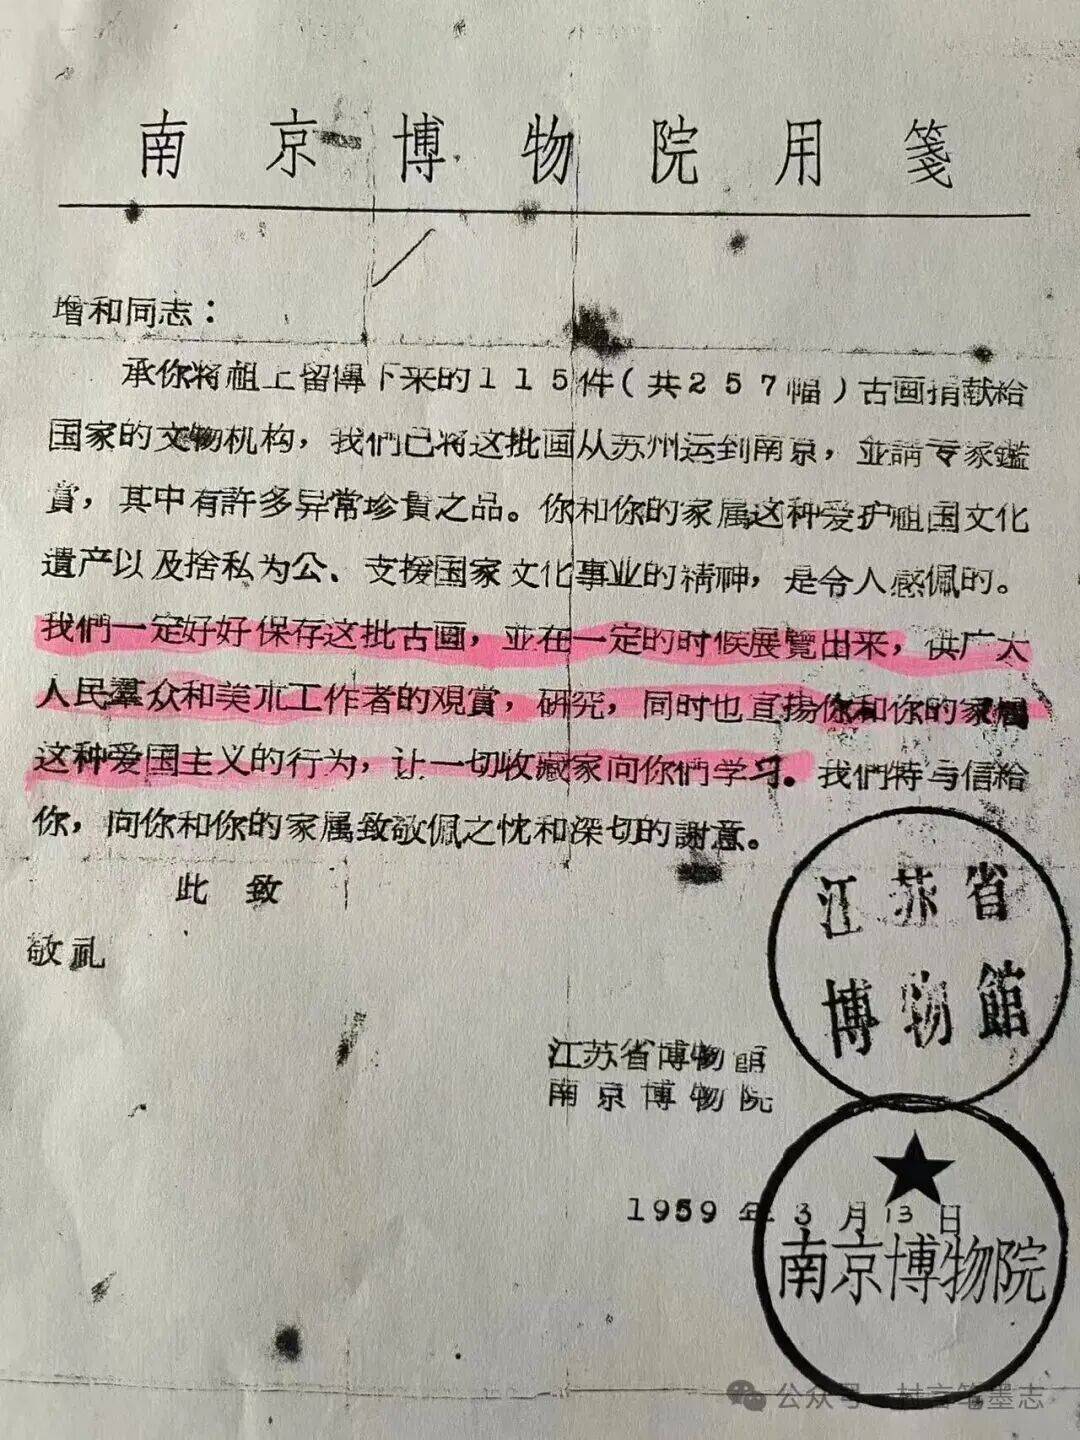 南京博物院用笺
增和同志：
承你将祖上留傳下来的115件(共257幅)古画捐献給
国家的文物机构，我們已将这批画从苏州运到南京，並請专家鑑
賞，其中有許多异常珍貴之品。你和你的家属这种爱护祖国文化
遺产以及捨私为公、支援国家文化事业的精神，是令人感佩的。
我們一定好好保存这批古画，並在一定的时候展覽出来，供广大
人民羣众和美术工作者的观賞，研究，同时也宣揚你和你的家属
这种爱国主义的行为，让一切收藏家向你們学习。我們特与信給
你，向你和你的家属致敬佩之忱和深切的謝意。
此致
敬礼
江苏省
博物館
江苏省博物館
南京博物院
1959年3月13日
南京博物院
公众号·村言笔墨志